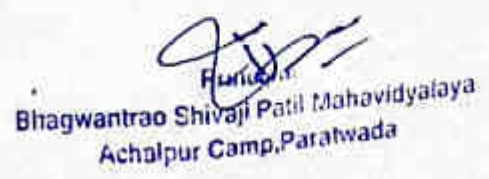 Bhagwantrao Shivaji Patil Mahavidyalaya
Achalpur Camp,Paratwada